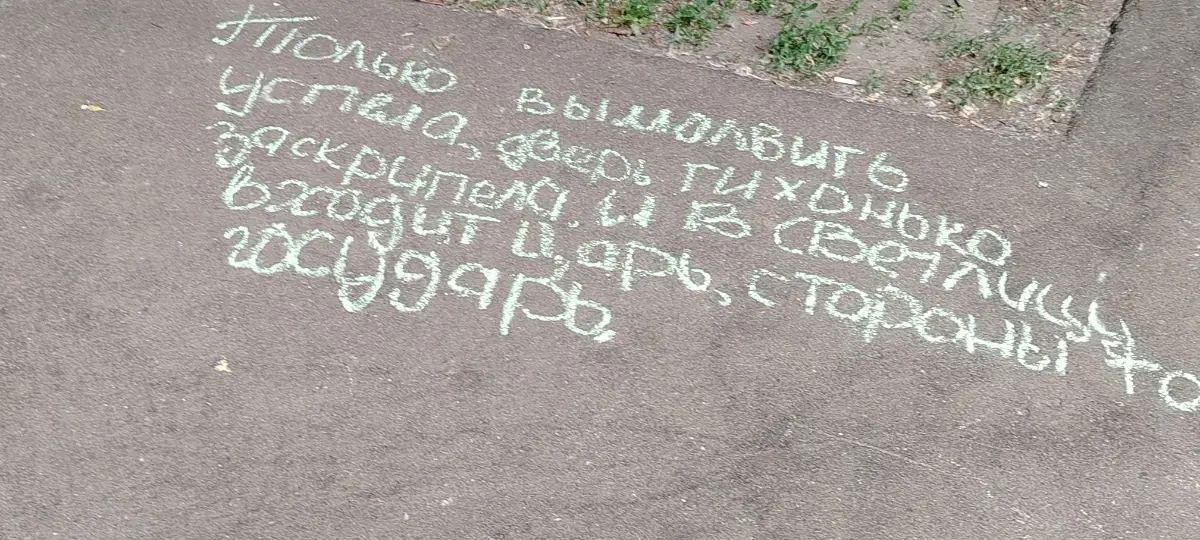 Только вымолвить
успела, дверь тихонько
заскрипела. И в светлицу
входит царь, стороны то
государь.